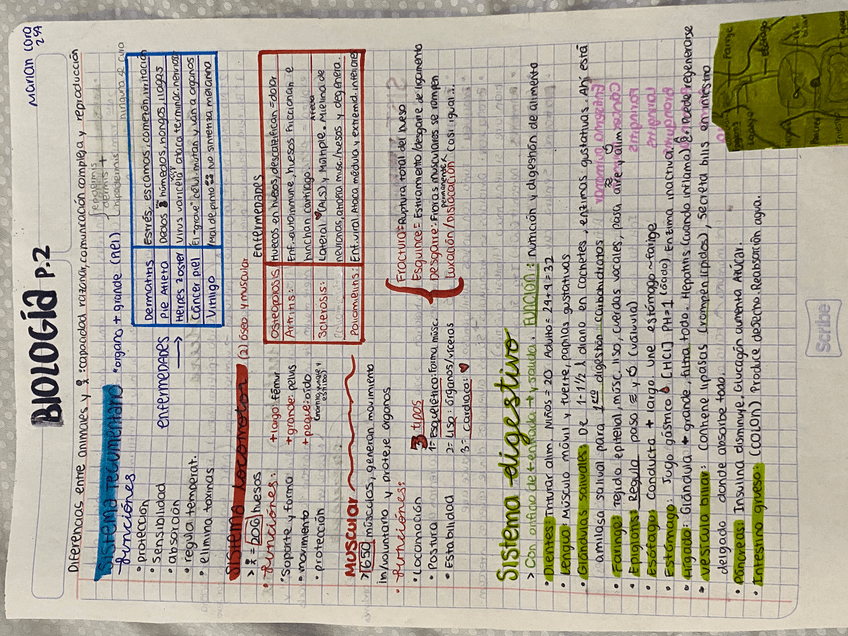 Marian Lora
299
BIOLOGÍA P.2
Diferencias entre animales y : capacidad razonar, comunicación compleja y reproducción
Sistema tegumentario *organo + grande (piel)
epidermis
dermis +
hipodermis
funciones
• protección
• sensibilidad
• absorción
• regula temperat.
• elimina toxinas
enfermedades →
Dermatitis Estrés, escamas, comezón, irritación
Pie Atleta Dedos húmedos, hongos, llagas
Herpes zoster Virus varicela ataca terminac. nerviosa
Cáncer piel Es "grave" célul. mutan y van a órganos
Vitiligo Mal de pinto no sintenta melanina
Sistema Locomotor (2) óseo y muscular
> = 206 huesos
• funciones:
• Soporte y forma
• movimiento
• protección
+ largo: Fémur
+ grande: pelvis
+ peque: oído
(martillo, yunque y estribo)
Enfermedades
Osteoporosis Huecos en huesos, descalsifican = dolor
Artritis: Enf. autoinmune, huesos friccionan e hinchan cartílago.
Sclerosis: Lateral (ALS) y Múltiple. Afecta Mielina de neuronas, atrofia músc/huesos y degenera.
Poliomelitis: Enf. viral Ataca médula y extremid. inferiores
MUSCULAR
> 650 músculos, generan movimiento
in/voluntario y protege órganos
• funciones:
• Locomoción
• Postura
• Estabilidad
3 tipos
1= Esquelético: forma músc.
2= Liso: órganos/víceras
3= cardiaco: ♥
Fractura= Ruptura total del hueso
Esguince= Estiramiento/desgarre de ligamento
Desgarre= Fibras musculares se rompen
permanente
Luxación/Dislocación: Casi igual a:
Sistema digestivo
> Con orificio de entrada y salida. FUNCIÓN: nutrición y digestión de alimento
• Dientes: Triturar alim. Niños = 20 Adulto = 28+4 = 32
• Lengua: Músculo móvil y fuerte, papilas gustativas
• Glándulas salivales: De 1-1 1/2 l diario en cachetes, enzimas gustativas. Ahí está
amilasa salival para 1era digestión Carbohidratos
• Faringe: Tejido epitelial, músc. liso, cuerdas vocales, pasa aire y alim
• Epiglotis: Regula paso y (saliva)
• Esófago: Conducto + largo. Une estómago ~ faringe
• Estómago: Jugo gástrico [HCl] PH=1 (ácido) Enzima inactiva
• Hígado: Glándula + grande, filtra todo. Hepatitis (cuando inflama) puede regenerarse
• Vesícula biliar: Contiene lipasas (rompen lípidos), secreta bilis en intestino
delgado donde absorbe todo.
• Páncreas: Insulina disminuye, Glucagón aumenta Azúcar.
• Intestino grueso: (COLON) Produce desecho. Reabsorción agua.
Scribe